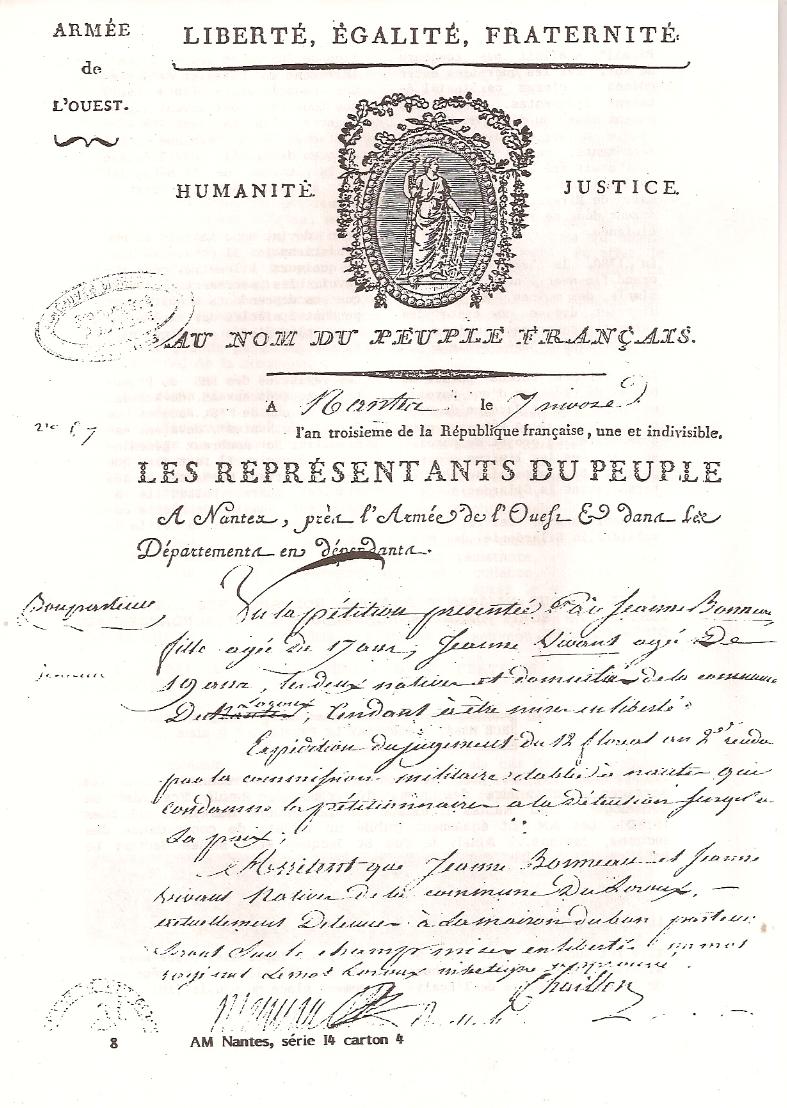 ARMÉE
de
L'OUEST.
LIBERTÉ, ÉGALITÉ, FRATERNITÉ.
HUMANITÉ.
JUSTICE.
AU NOM DU PEUPLE FRANÇAIS.
A Nantes le 7 nivose
l'an troisieme de la République française, une et indivisible.
LES REPRÉSENTANTS DU PEUPLE
A Nantes, près l'Armée de l'Ouest & dans les
Départements en dépendants.
Vu la pétition presentée Par Jeanne Bonneau
fille agée de 17 ans, Jeanne Vivant agée De
19 ans, les deux natives et domiciliées de la commune
De Nantes Loroux, tendant à être mises en liberté
Expédition du jugement du 12 floreal an 2e rendu
par la commission militaire etablie à nantes qui
condamne les pétitionnaires à la détention jusqu'a
La paix;
Arrêtent que Jeanne Bonneau et Jeanne
vivant Natives de la commune Du Loroux,
actuellement Detenues à la maison du bon pasteur
Seront Sur le champ mises en liberté
Chaillon
8
AM Nantes, série 14 carton 4